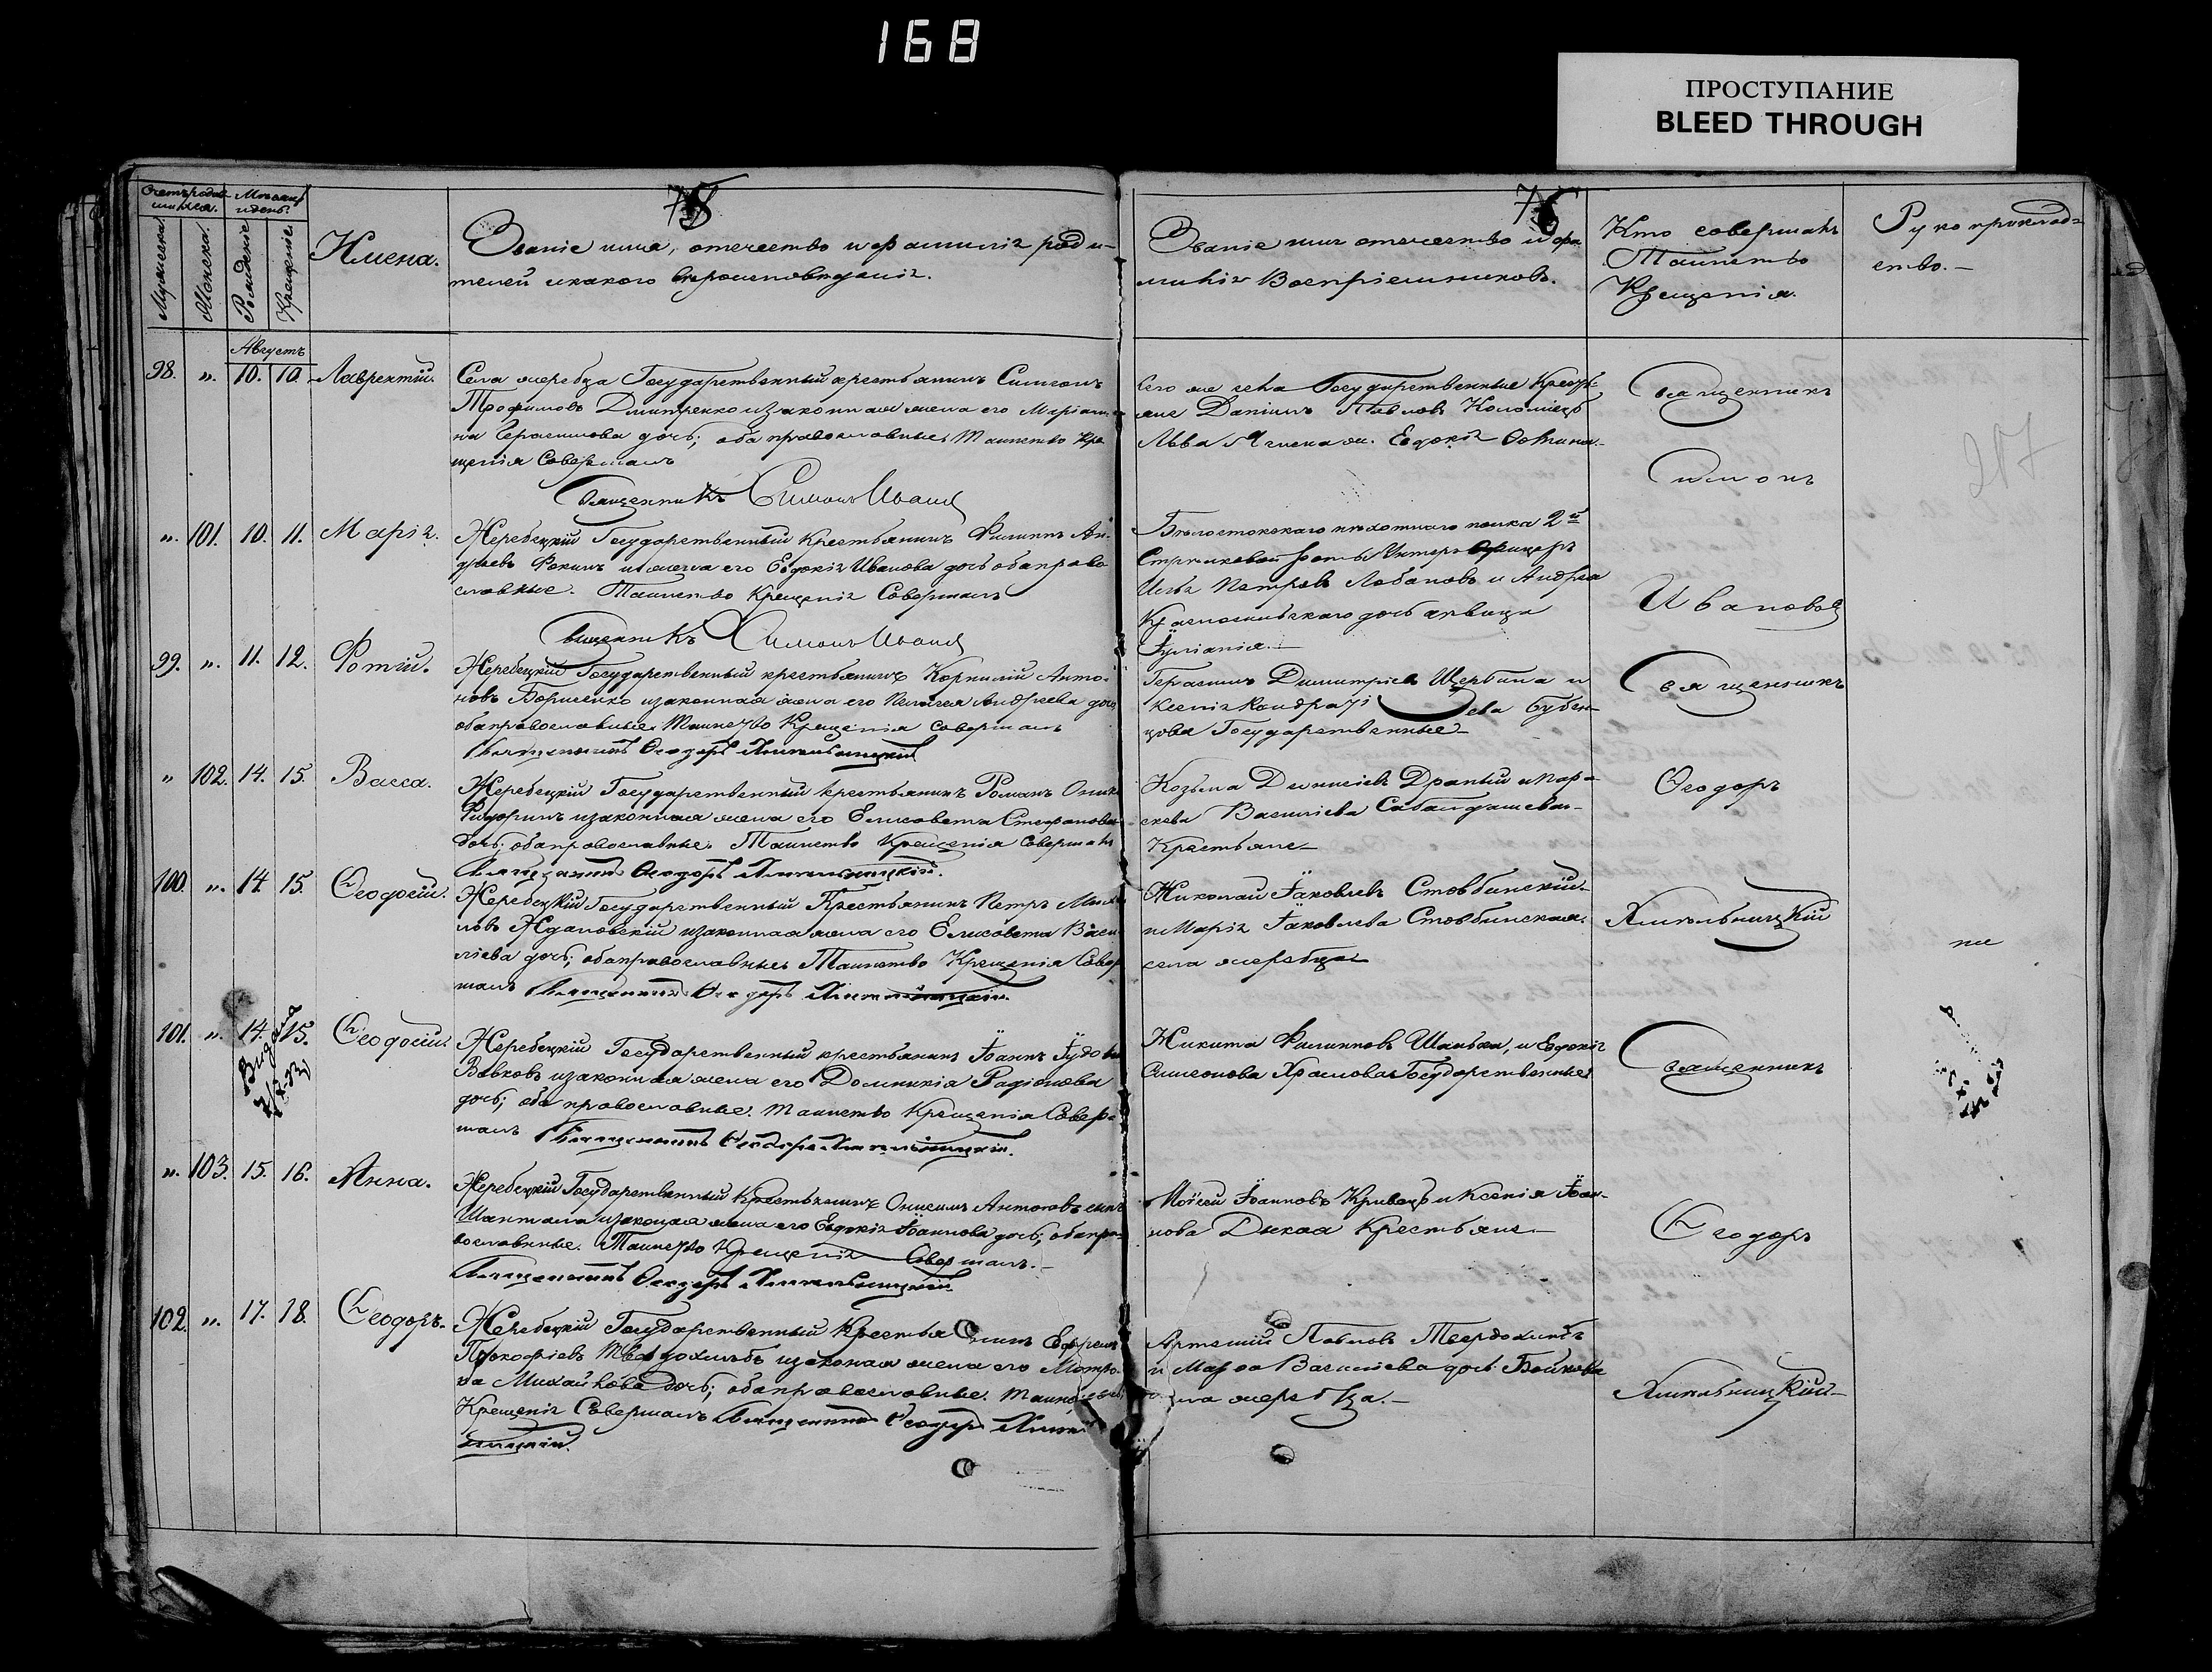 168
ПРОСТУПАНИЕ
BLEED THROUGH
75
76
Счетъ родив-
шихся.
Мѣсяцъ
и день.
Мужеска.
Женска.
Рожденіе
Крещеніе.
Имена.
Званіе имя, отечество и фамилія роди-
телей и какого вѣроисповѣданія.
Званіе имя отечество и фа-
милія Воспріемниковъ.
Кто совершалъ
Таинство
Крещенія.
Рукоприклад-
ство.
Августъ
98. ". 10. 10. Лаврентій.
Села жеребца Государственный крестьянинъ Симеонъ
Трофимовъ Дмитренко и законная жена его Маріам-
на Герасимова дочь; оба православные. Таинство Кре
щенія Совершалъ
Священникъ Симонъ Иванов
Того же села Государственные Кресть-
яне Даніилъ Павловъ Коломіецъ
Льва жена Евдокія
Священникъ
Симонъ
Ивановъ
217
". 101. 10. 11. Марія.
Жеребецкій Государственный Крестьянинъ Филиппъ Ан-
дреевъ Фокинъ и жена его Евдокія Иванова дочь оба право
славные. Таинство Крещенія Совершалъ
Священникъ Симонъ Иванов
Бѣлостокскаго пѣхотнаго полка 2й
Стрѣлковой роты Унтеръ Офицеръ
Илья Петровъ Лобановъ и Андрея
дочь дѣвица
Іуліанія.
99. ". 11. 12. Фотій.
Жеребецкій Государственный крестьянинъ Корнилій Анто-
новъ Борисенко и законная жена его Пелагея Андреева дочь
оба православные. Таинство Крещенія совершалъ
Священникъ Ѳеодоръ Хмельницкій
Герасимъ Димитріевъ Щербина и
Ксенія Кондратіева Бубен-
цова Государственные
Священникъ
" 102. 14. 15. Васса.
Жеребецкій Государственный крестьянинъ Романъ
и законная жена его Елисавета Стефанова
дочь; оба православные. Таинство Крещенія Совершалъ
Священникъ Ѳеодоръ Хмельницкій.
Козьма Діонисіевъ Драный и Пара-
скева Василіева
Крестьяне
Ѳеодоръ
100. ". 14. 15. Ѳеодосій.
Жеребецкій Государственный Крестьянинъ Петръ
Ждановскій и законная жена его Елисавета Васи
ліева дочь; оба православные Таинство Крещенія Совер
шалъ Священникъ Ѳеодоръ Хмельницкій.
Николай Іаковлевъ Стовбинскій
и Марія Іаковлева Стовбинская.
села жеребца
Хмельницкій
101. ". 14. 15. Ѳеодосій.
Жеребецкій Государственный крестьянинъ Іоаннъ
Вовковъ и законная жена его Домникія Родіонова
дочь; оба православные. Таинство Крещенія Совер-
шалъ Священникъ Ѳеодоръ Хмельницкій.
Никита Филипповъ Шаньва, и Евдокія
Симеонова Храмова Государственные
Священникъ
". 103. 15. 16. Анна.
Жеребецкій Государственный Крестьянинъ Онисимъ Антоновъ сынъ
и законная жена его Евдокія Іоаннова дочь; оба пра-
вославные. Таинство Крещенія Совершалъ.
Священникъ Ѳеодоръ Хмельницкій
Моисей Іоанновъ Кривецъ и Ксенія Іоан-
нова Дикая Крестьяне
Ѳеодоръ
102. ". 17. 18. Ѳеодоръ.
Жеребецкій Государственный Крестьянинъ Ефремъ
Прокофіевъ Твердохлѣбъ и законная жена его Матро-
на Михайлова дочь; оба православные. Таинство
Крещенія Совершалъ Священникъ Ѳеодоръ Хмель
ницкій.
Артемій Павловъ Твердохлѣбъ
и Марѳа Василіева дочь Бойкова
села жеребца.
Хмельницкій